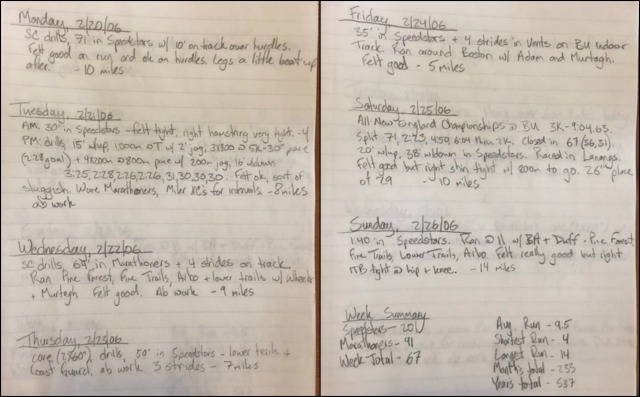 Monday, 2/20/06
SC drills, 71' in Speedstars w/ 10' on track over hurdles.
Felt good on run and ok on hurdles. Legs a little beat up
after. - 10 miles
Tuesday, 2/21/06
AM: 30' in Speedstars - felt tight, right hamstring very tight. - 4
PM: drills, 15' w/up, 1000m @ T w/ 2' jog, 3x800 @ 5K - 30" pace
(2:28 goal) + 4x200m @ 800m pace w/ 200m jog, 16' w/down
3:25, 2:28, 2:26, 2:26, 31, 30, 30, 30. Felt ok, sort of
sluggish. Wore Marathoners, Miler XC's for intervals - 8 miles
ab work
Wednesday, 2/22/06
SC drills, 69' in Marathoners + 4 strides on track
Ran Pine Forest, Fire Trails, Arbo + lower trails w/
+ Murtagh. Felt good. Ab work - 9 miles
Thursday, 2/23/06
core (2x60"), drills, 50' in Speedstars - lower trails +
Coast Guard. ab work 3 strides - 7 miles
Friday, 2/24/06
35' in Speedstars + 4 strides in on BU indoor
Track. Ran around Boston w/ Adam and Murtagh.
Felt good - 5 miles
Saturday, 2/25/06
All-New England Championships @ BU 3K - 9:04.63.
Split 71, 2:23, 4:50, 6:04 thru 2K. Closed in 67 (36, 31).
20' w/up, 38' w/down in Speedstars. Raced in
Felt good but right shin tight w/ 800m to go. 26th place
of 29 - 10 miles
Sunday, 2/26/06
1:40 in Speedstars. Ran @ 11 w/ + Duff - Pine Forest,
Fire Trails, Lower Trails, Arbo. Felt really good but right
ITB tight @ hip + knee. - 14 miles
Week Summary
Speedstars - 201
Marathoners - 91
Week Total - 67
Avg. Run - 9.5
Shortest Run - 4
Longest Run - 14
Month's total - 233
Years total - 537